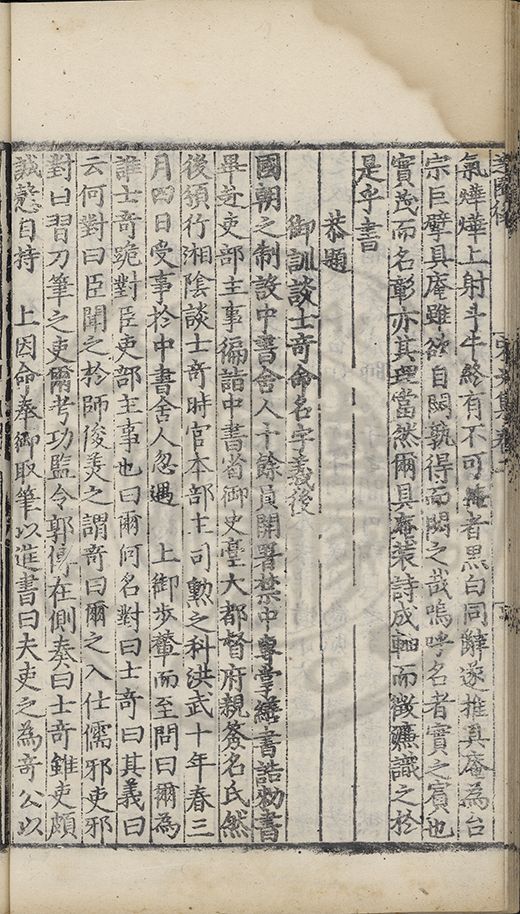 氣燁燁上射斗牛終有不可掩者黑白同辭遂推具庵為台
宗巨擘具庵雖欲自閟孰得而閟之哉嗚呼名者實之賓也
實茂而名彰亦其理當然爾具庵裝詩成軸而徵濂識之於
是乎書
恭題
御訓談士奇命名字義後
國朝之制設中書舍人十餘員開署禁中專掌繕書誥勑書
畢赴吏部主事徧詣中書省御史臺大都督府親簽名氏然
後頒行湘陰談士奇時官本部主司勳之科洪武十年春三
月四日受事於中書舍人忽遇　上御步輦而至問曰爾為
誰士奇跪對臣吏部主事也曰爾何名對曰士奇曰其義曰
云何對曰臣聞之於師俊羙之謂奇曰爾之入仕儒邪吏邪
對曰習刀筆之吏爾考功監令郭傳在側奏曰士奇雖吏頗
誠慤自持　上因命奉御取筆以進書曰夫吏之為奇公以